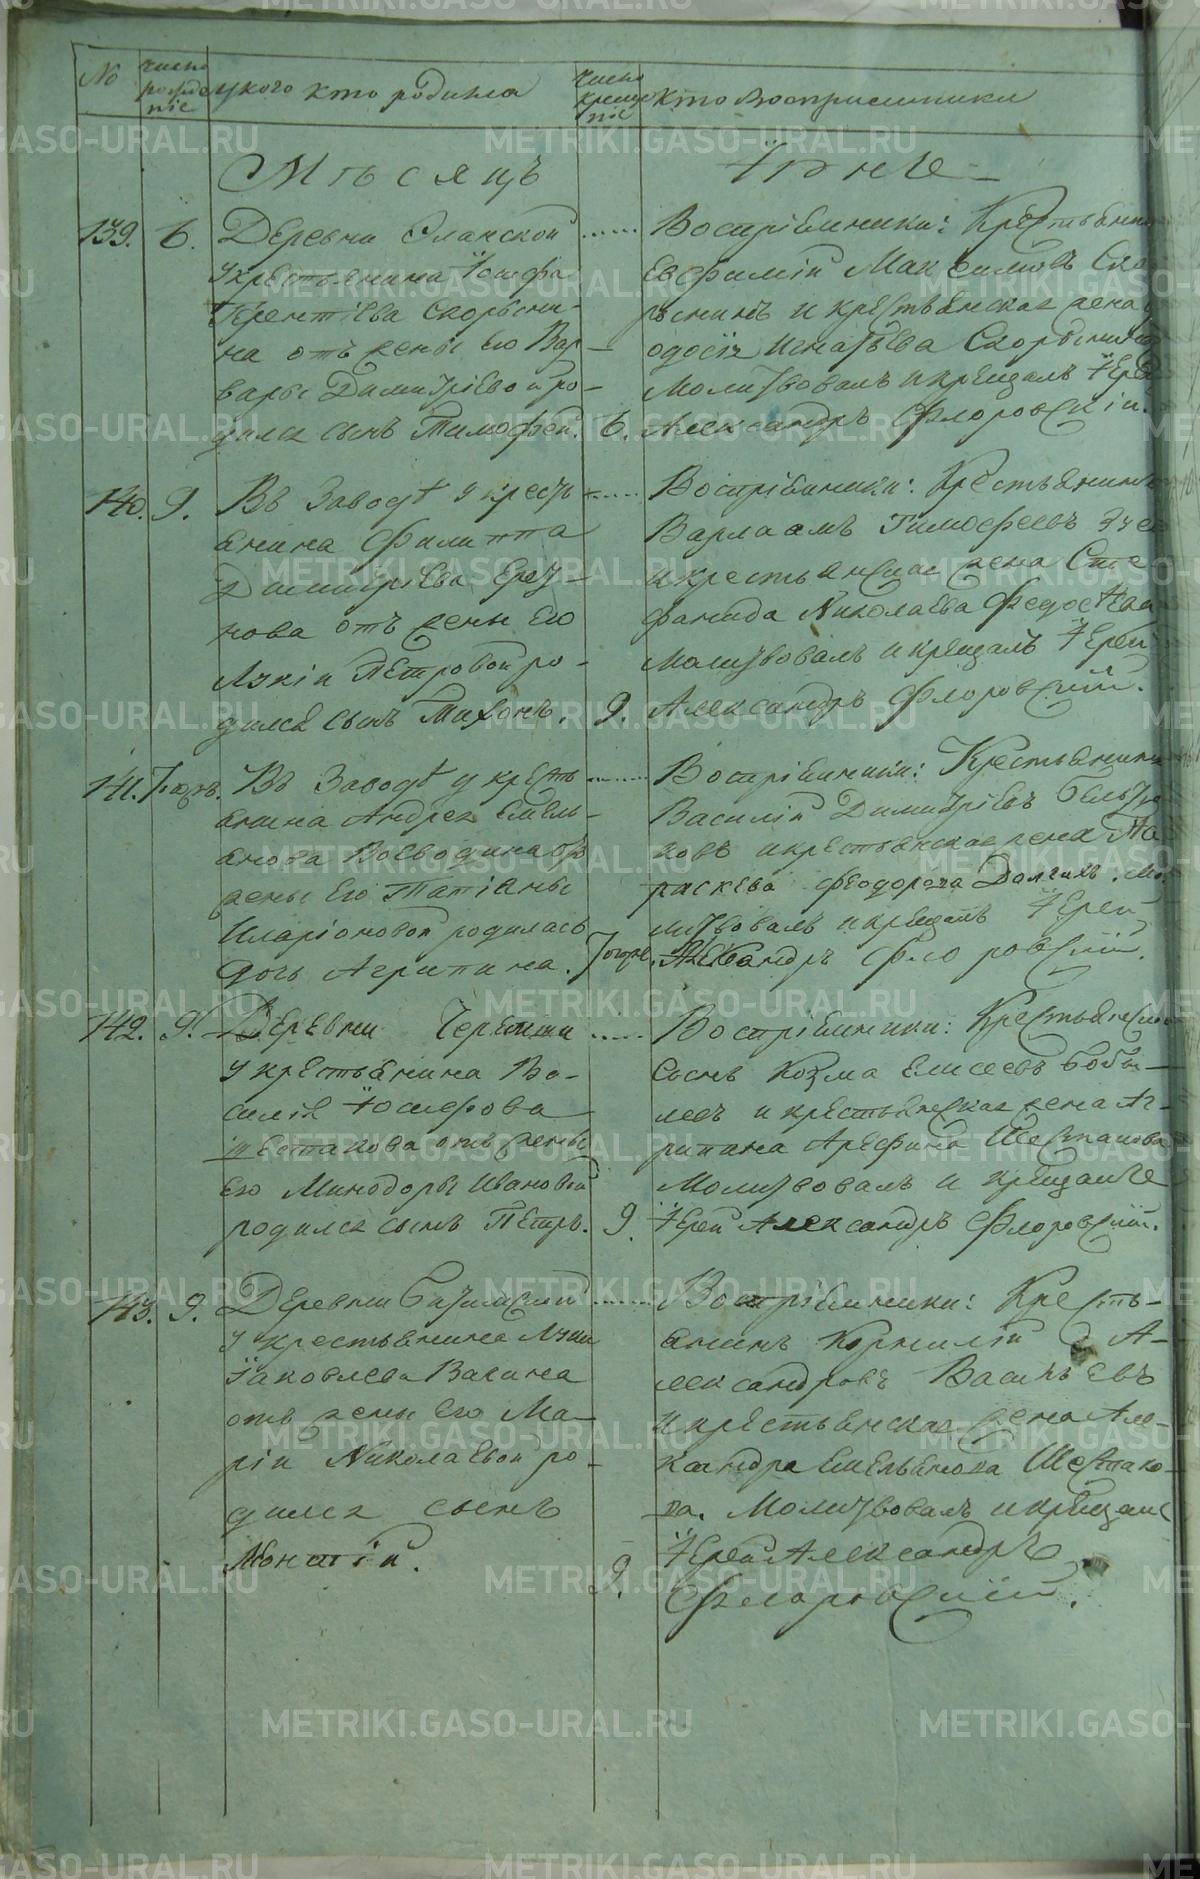 No
число рожденіе
у кого кто родился
число крещеніе
кто восприемники
Мѣсяцъ
Іюнь
139. 6. Деревни Сланской
у крестьянина Іосифа
Терентіева Скорыни-
на отъ жены его Вар-
вары Димитріевой ро-
дился сынъ Тимофей. 6.
Воспріемники: Крестьянинъ
Евфимій Максимовъ Ско-
рынинъ и крестьянская жена
Игнатьева Скорынина
Молитвовалъ и крещалъ Іерей
Александръ Флоровскій.
140. 9. Въ Заводѣ у крест
янина Филиппа
Димитріева
нова отъ жены его
Лукіи Петровой ро-
дился сынъ Тихонъ. 9.
Воспріемники: Крестьянинъ
Варлаамъ Тимофеевъ
и крестьянская жена Сте
фанида Николаева Федосѣева
Молитвовалъ и крещалъ Іерей
Александръ Флоровскій.
141. 7. Въ Заводѣ у крестъ
янина Андрея Емель-
янова Воеводина отъ
жены его Татіяны
Иларіоновой родилась
дочь Агрипина. 7
Воспріемники: Крестьянинъ
Василій Димитріевъ
ковъ и крестьянская жена Па
раскева Феодорова Долгихъ. Мо
литвовалъ и крещалъ Іерей
Александръ Флоровскій.
142. 9. Деревни Черемши
у крестьянина Ва-
силія Іосифова
Шестакова отъ жены
его Минодоры Ивановой
родился сынъ Петръ. 9.
Воспріемники: Крестьянскій
сынъ Козма Елисеевъ Бобы-
левъ и крестьянская жена Аг-
рипина Арефина Шестакова
Молитвовалъ и крещалъ
Іерей Александръ Флоровскій.
143. 9. Деревни
у крестьянина Луки
Іаковлева Вагина
отъ жены его Ма-
ріи Николаевой ро-
дился сынъ
9.
Воспріемники: Кресть-
янинъ Корнилій А-
лександровъ Васильевъ
и крестьянская жена Але-
ксандра Емельянова Шестако-
ва. Молитвовалъ и крещалъ
Іерей Александръ
Флоровскій.
METRIKI.GASO-URAL.RU